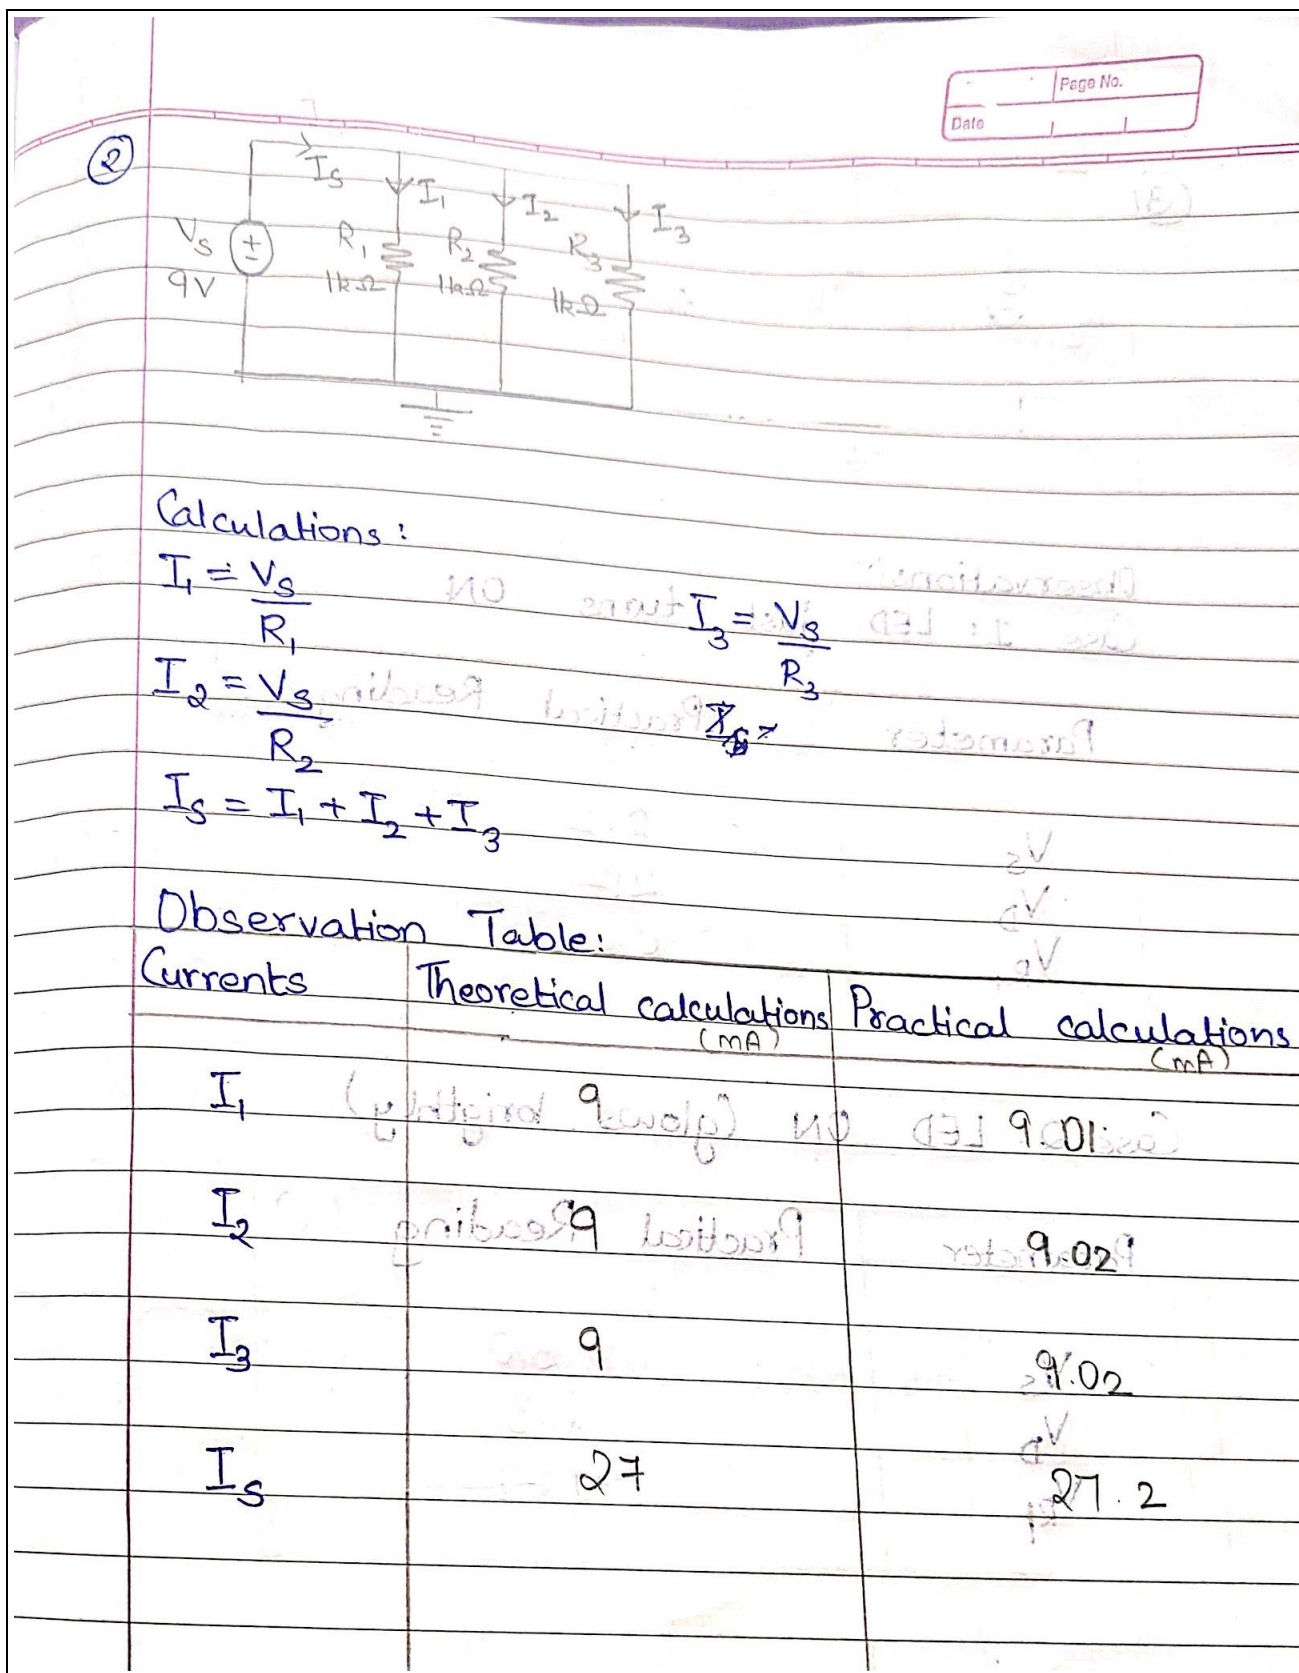 Page No.
Date
2
Is
I₁
I₂
I₃
Vs
9V
R₁
1kΩ
R₂
1kΩ
R₃
1kΩ
Calculations:
I₁ = Vs/R₁
I₃ = Vs/R₃
I₂ = Vs/R₂
Is = I₁ + I₂ + I₃
Observation Table:
Currents Theoretical calculations (mA) Practical calculations (mA)
I₁ 9 9.01
I₂ 9 9.02
I₃ 9 9.02
Is 27 27.2